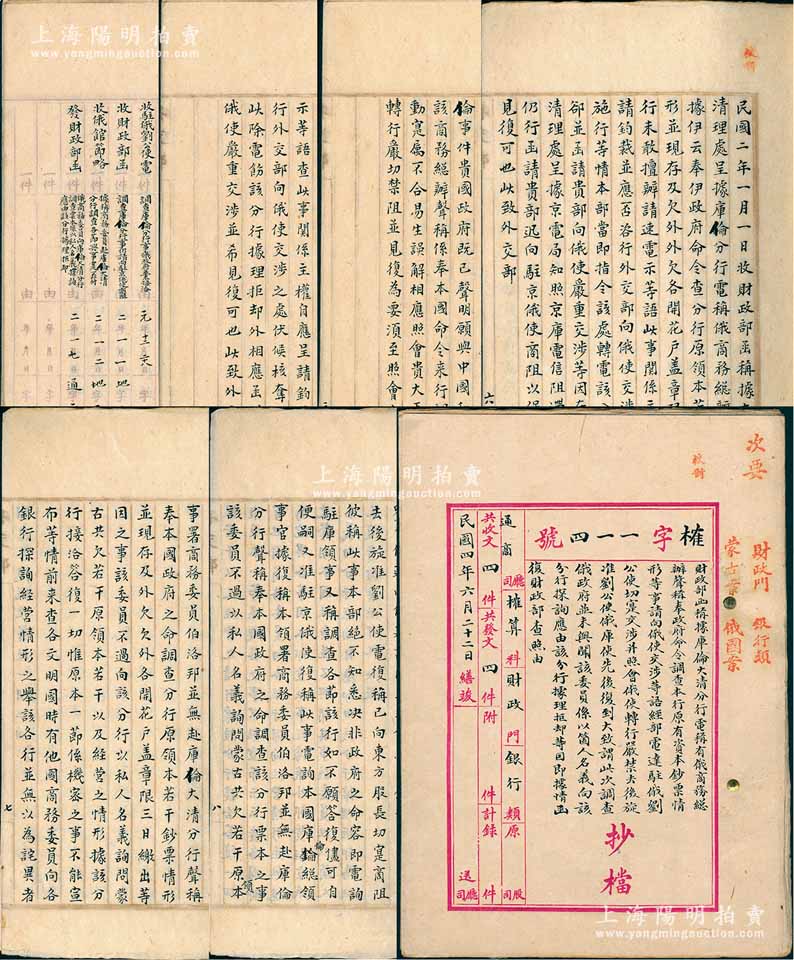 上海陽明拍賣
www.yangmingauction.com
校對
民國二年一月一日收財政部函稱據大
清理處呈據庫倫分行電稱俄商務總辦
據伊云奉伊政府命令查分行原領本若
形並現存及欠外外欠各開花戶蓋章限
行未敢擅辦請速電示等語此事關係主
請鈞裁並應否洛行外交部向俄使交涉
施行等情本部當即指令該處轉電該
部並函請貴部向俄使嚴重交涉等因在
清理處呈據京電局知照京庫電信阻滯
仍行函請貴部迅向駐京俄使商阻以保
見復可也此致外交部
六
倫事件貴國政府既已聲明願與中國
該商務總辦聲稱係奉本國命令来行調
動寔屬不合易生誤解相應照會貴大
轉行嚴切禁阻並見復為要須至照會
示等語查此事關係主權自應呈請鈞
行外交部向俄使交涉之處伏候核奪
此除電飭該分行據理拒却外相應函
俄使嚴重交涉並希見復可也此致外
收駐俄劉公使電
收財政部函
收俄館節略
發財政部函
次要
校對
財政門 銀行類
蒙古案 俄國案
榷字一一四號
財政部函稱據庫倫大清分行電稱有俄商務総
辦聲稱奉政府命令調查本行原有資本鈔票情
形等事請向俄使交涉等語經部電達駐俄劉
公使切寔交涉并照會俄使轉行嚴禁去後旋
准劉公使俄庫使先後復到大致謂此次調查
俄政府並未與聞該委員係以個人名義向該
分行探詢應由該分行據理拒却等因即據情函
復財政部查照由
抄檔
通商司廳榷算科財政門銀行類原司股
共收文四件共發文四件附件計錄件
民國四年六月二十二日繕竣
送司廳
去後旋准劉公使電復稱已向東方股長切寔商阻
彼稱此事本部絕不知悉决非政府之命容即電詢
駐庫領事又稱調查各節該行如不願答復儘可自
便嗣又准駐京俄使復稱此事電詢本國庫倫総領
事官據復稱本領署商務委員伯洛邦並無赴庫倫
分行聲稱奉本國政府之命調查該分行票本之事
該委員不過以私人名義詢問蒙古共欠若干原領本
八
事署商務委員伯洛邦並無赴庫倫大清分行聲稱
奉本國政府之命調查分行原領本若干鈔票情形
並現存及外欠欠外各開花戶蓋章限三日繳出等
因之事該委員不過向該分行以私人名義詢問蒙
古共欠若干原領本若干以及經營之情形據該分
行接洛答復一切惟原本一節係機密之事不能宣
布等情前來查各文明國時有他國商務委員向各
銀行探詢經營情形之舉該各行並無以為詫異者
七